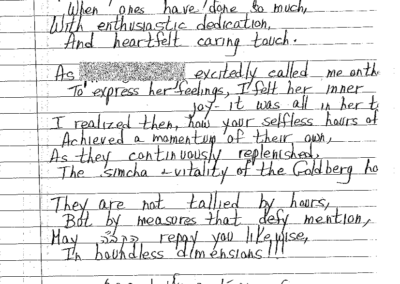 When ones have done so much,
With enthusiastic dedication,
And heartfelt caring touch.
As excitedly called me on th
To express her feelings, I felt her inner
joy - it was all in her t
I realized then, how your selfless hours of
Achieved a momentum of their own,
As they continuously replenished,
The simcha & vitality of the Goldberg ho
They are not tallied by hours,
But by measures that defy mention,
May repay you likewise,
In boundless dimensions!!!